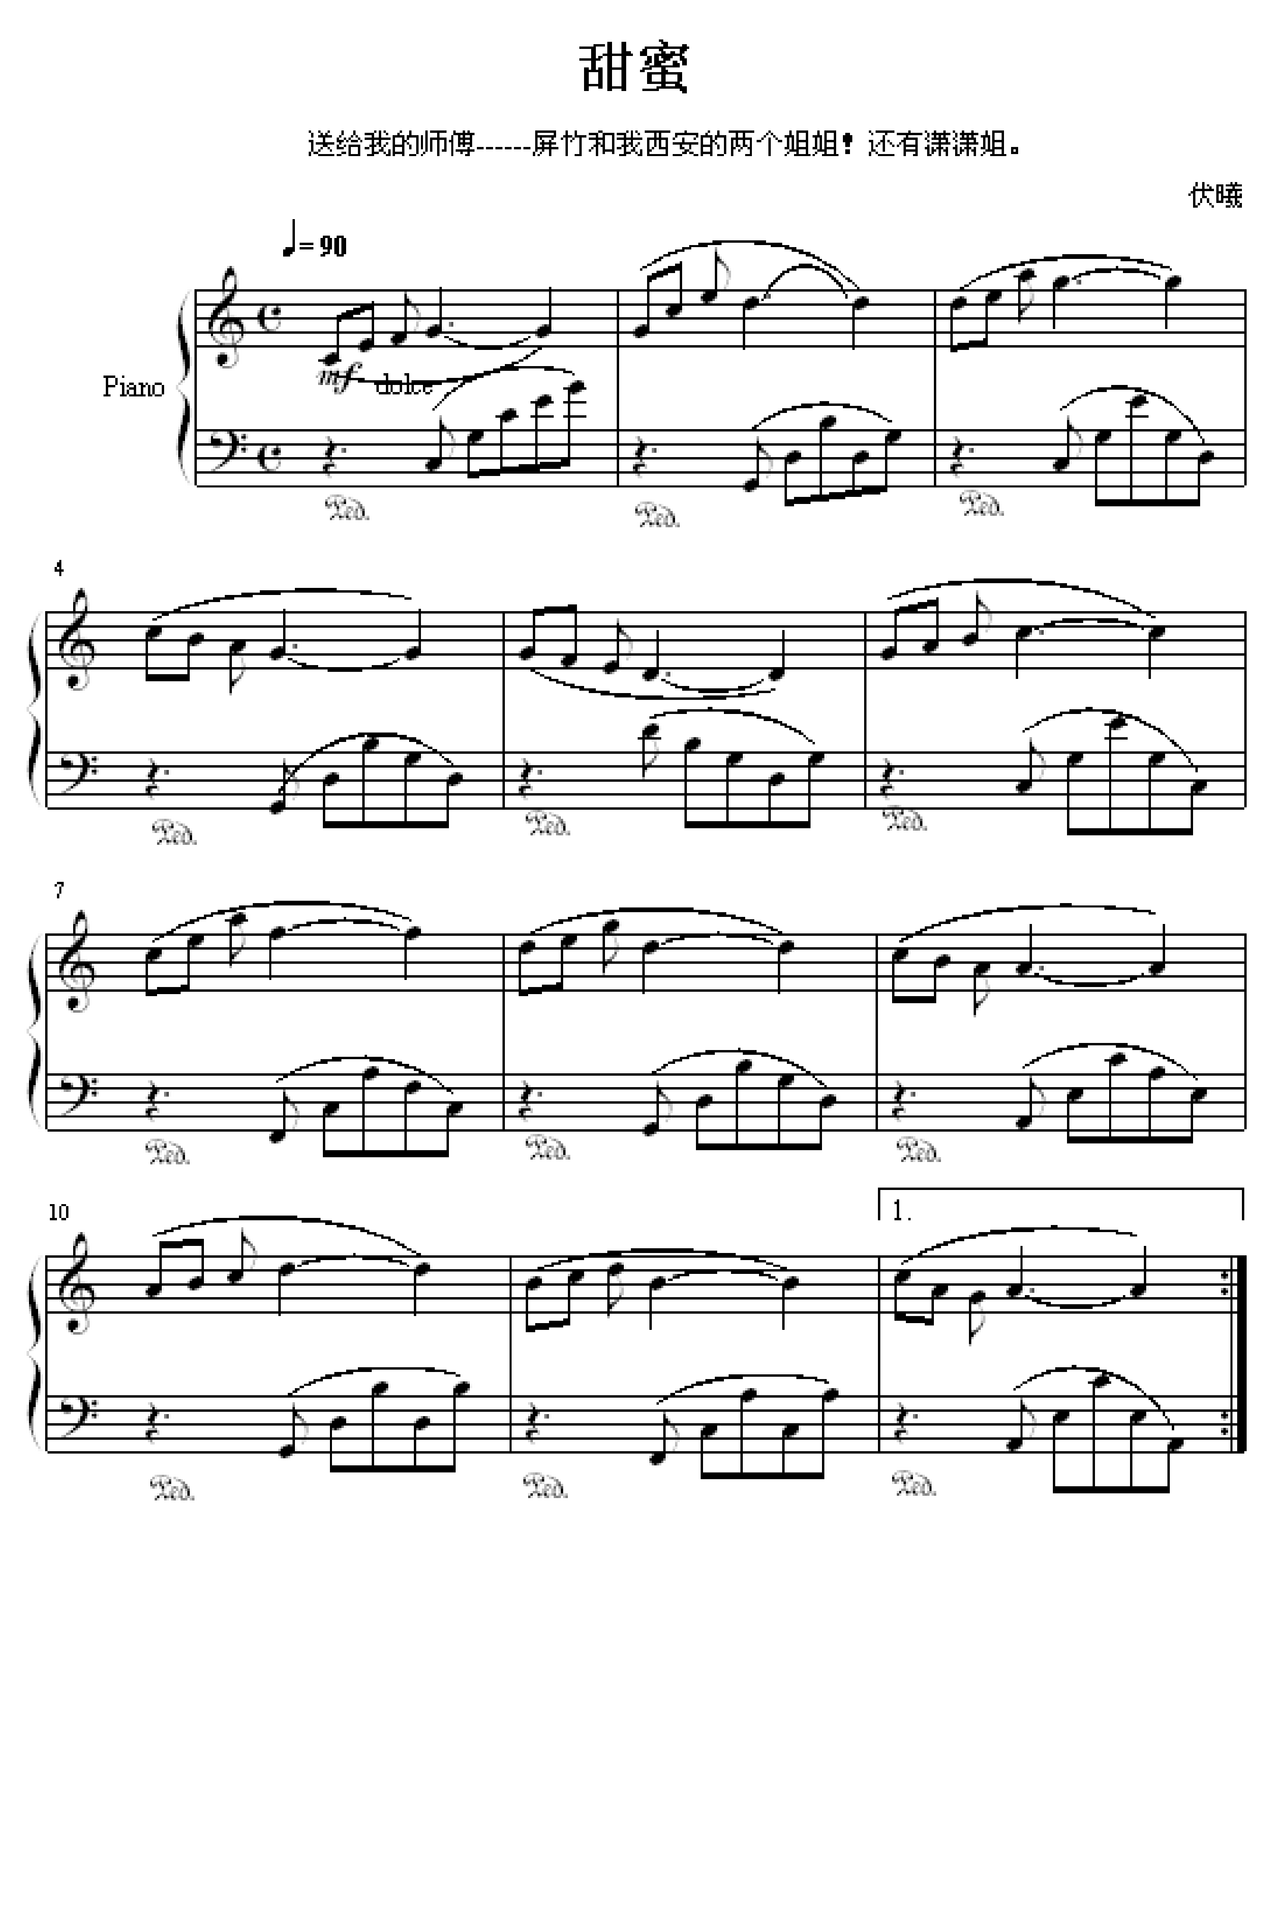 甜蜜
送给我的师傅------屏竹和我西安的两个姐姐！还有潇潇姐。
伏曦
♩= 90
Piano
mf dolce
Ped. Ped. Ped.
4
Ped. Ped. Ped.
7
Ped. Ped. Ped.
10 1.
Ped. Ped. Ped.